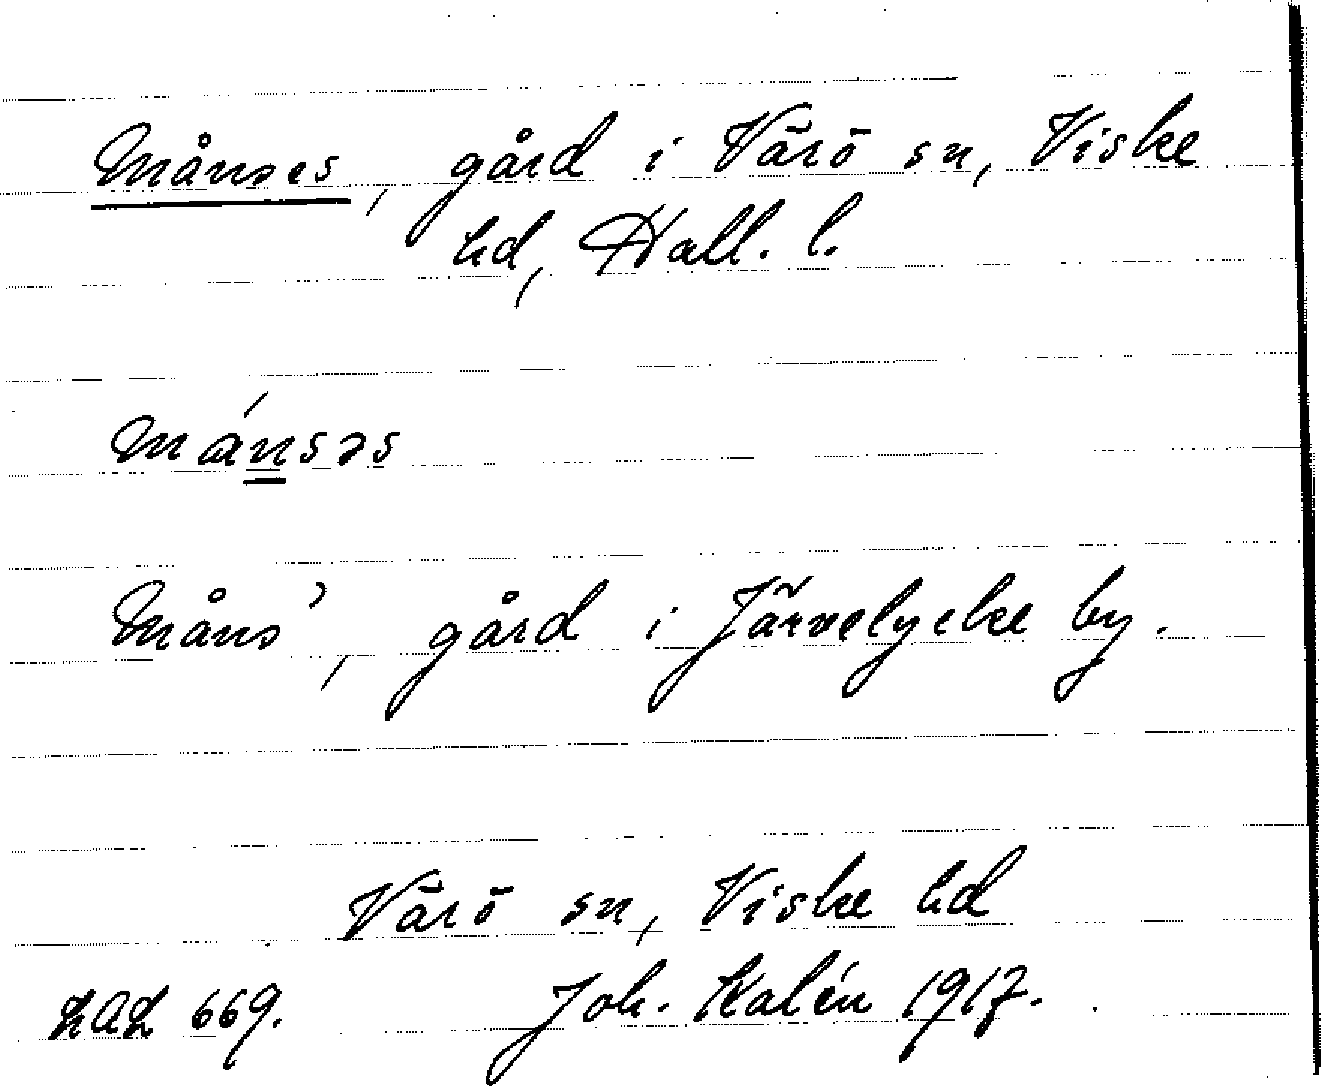 Månses, gård i Värö sn, Viske
hd, Hall. l.
mánsəs
Måns', gård i Järnelycke by.
Värö sn, Viske hd
LAL 669. Joh. Kalén 1917.